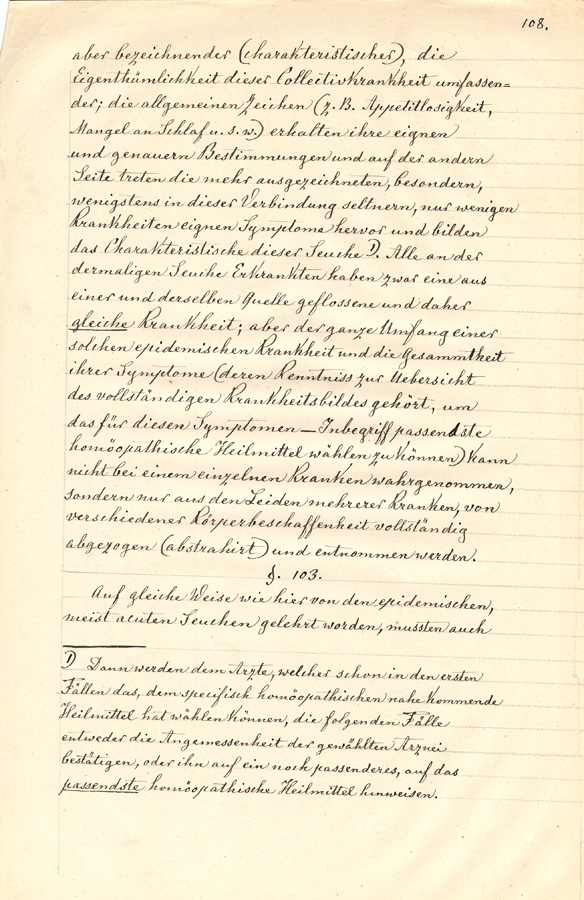 108.
aber bezeichnender (charakteristischer), die
Eigenthümlichkeit dieser Collectivkrankheit umfassen=
der; die allgemeinen Zeichen (z. B. Appetitlosigkeit,
Mangel an Schlaf u. s. w.) erhalten ihre eignen
und genauern Bestimmungen und auf der andern
Seite treten die mehr ausgezeichneten, besondern,
wenigstens in dieser Verbindung seltnern, nur wenigen
Krankheiten eignen Symptome hervor und bilden
das Charakteristische dieser Seuche 1). Alle an der
dermaligen Seuche Erkrankten haben zwar eine aus
einer und derselben Quelle geflossene und daher
gleiche Krankheit; aber der ganze Umfang einer
solchen epidemischen Krankheit und die Gesammtheit
ihrer Symptome (deren Kenntniss zur Uebersicht
des vollständigen Krankheitsbildes gehört, um
das für diesen Symptomen-Inbegriff passendste
homöopathische Heilmittel wählen zu können) kann
nicht bei einem einzelnen Kranken wahrgenommen,
sondern nur aus den Leiden mehrerer Kranken, von
verschiedener Körperbeschaffenheit vollständig
abgezogen (abstrahirt) und entnommen werden.
§. 103.
Auf gleiche Weise wie hier von den epidemischen,
meist acuten Seuchen gelehrt worden, mussten auch
1) Dann werden dem Arzte, welcher schon in den ersten
Fällen das, dem specifisch homöopathischen nahe kommende
Heilmittel hat wählen können, die folgenden Fälle
entweder die Angemessenheit der gewählten Arznei
bestätigen, oder ihn auf ein noch passenderes, auf das
passendste homöopathische Heilmittel hinweisen.